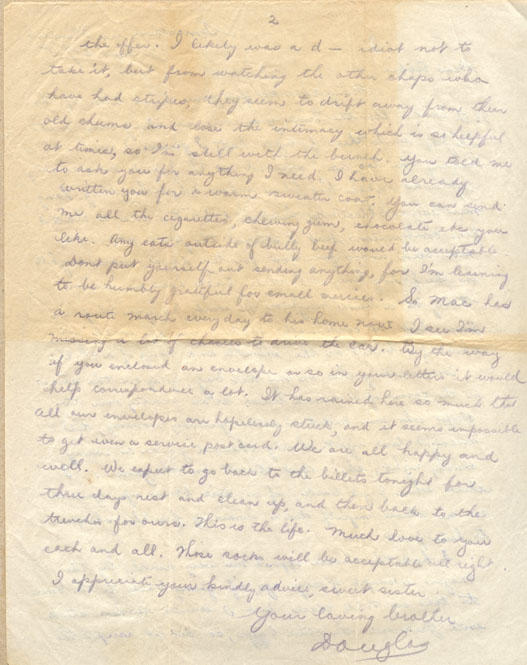 2
the offer. I likely was a d— idiot not to
take it, but from watching the other chaps who
have had stripes, they seem to drift away from their
old chums and lose the intimacy which is so helpful
at times, so I'm still with the bunch. You told me
to ask you for anything I need. I have already
written you for a warm sweater coat, you can send
me all the cigarettes, chewing gum, chocolate etc you
like. Any eats outside of bully beef would be acceptable
Dont put yourself out sending anything, for I'm learning
to be humbly grateful for small mercies. So Mac has
a route march every day to his home now. I see I'm
missing a lot of chances to drive the car. By the way
if you enclosed an envelope or so in your letters it would
help correspondence a lot. It has rained here so much that
all our envelopes are hopelessly stuck, and it seems impossible
to get even a service post card. We are all happy and
well. We expect to go back to the billets tonight for
three days rest and clean up, and then back to the
trenches for ours. This is the life. Much love to you
each and all. Those socks will be acceptable all right
I appreciate your kindly advice, sweet sister
Your loving brother
Douglas